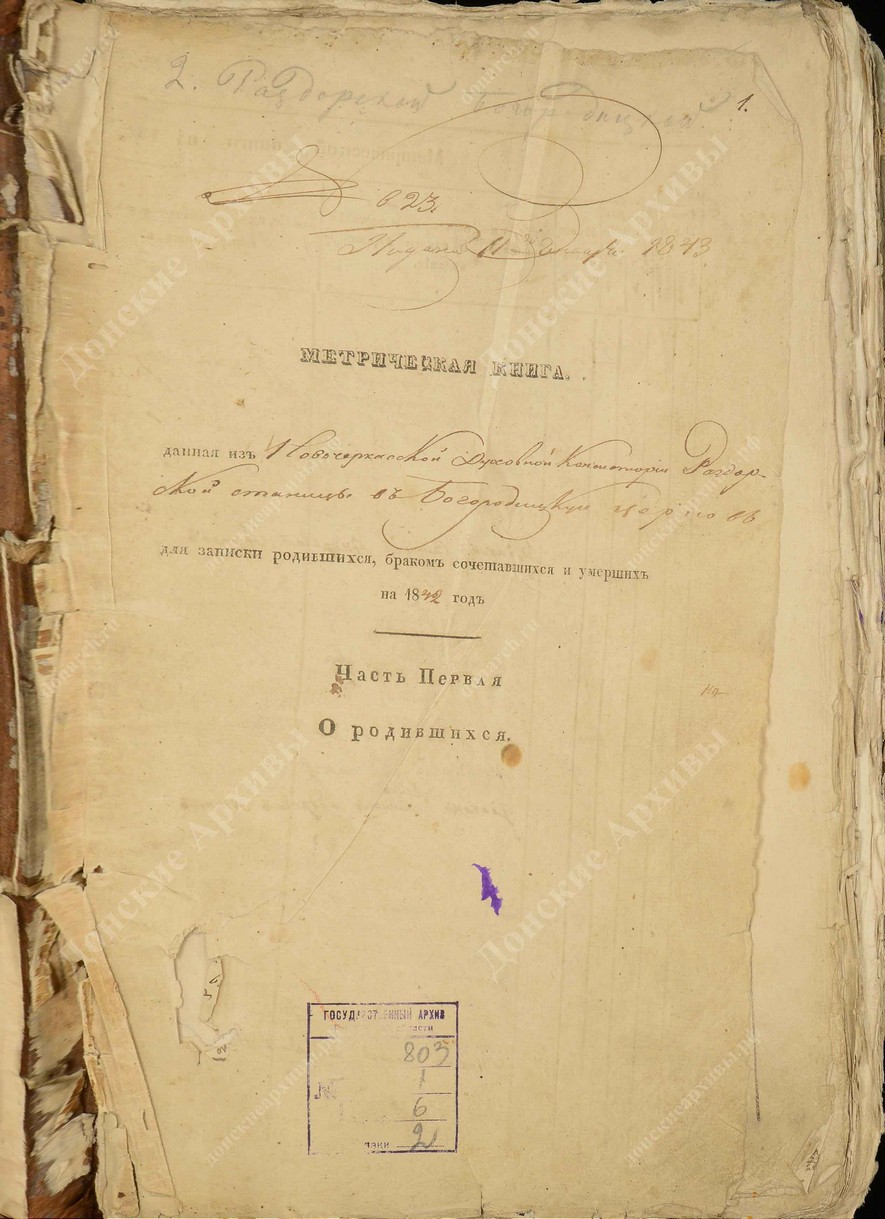 2. Раздорской Богородицкой
1.
№ 23.
Подана 11 Января 1843
МЕТРИЧЕСКАЯ КНИГА.
данная изъ Новочеркасской Духовной Консисторіи Раздор-
ской станицы въ Богородицкую церковь
для записки родившихся, бракомъ сочетавшихся и умершихъ
на 1842 годъ
Часть Первая
О родившихся.
ГОСУДАРСТВЕННЫЙ АРХИВ
области
803
№ 1
6
2
Донские Архивы
donarch.ru
донскиеархивы.рф